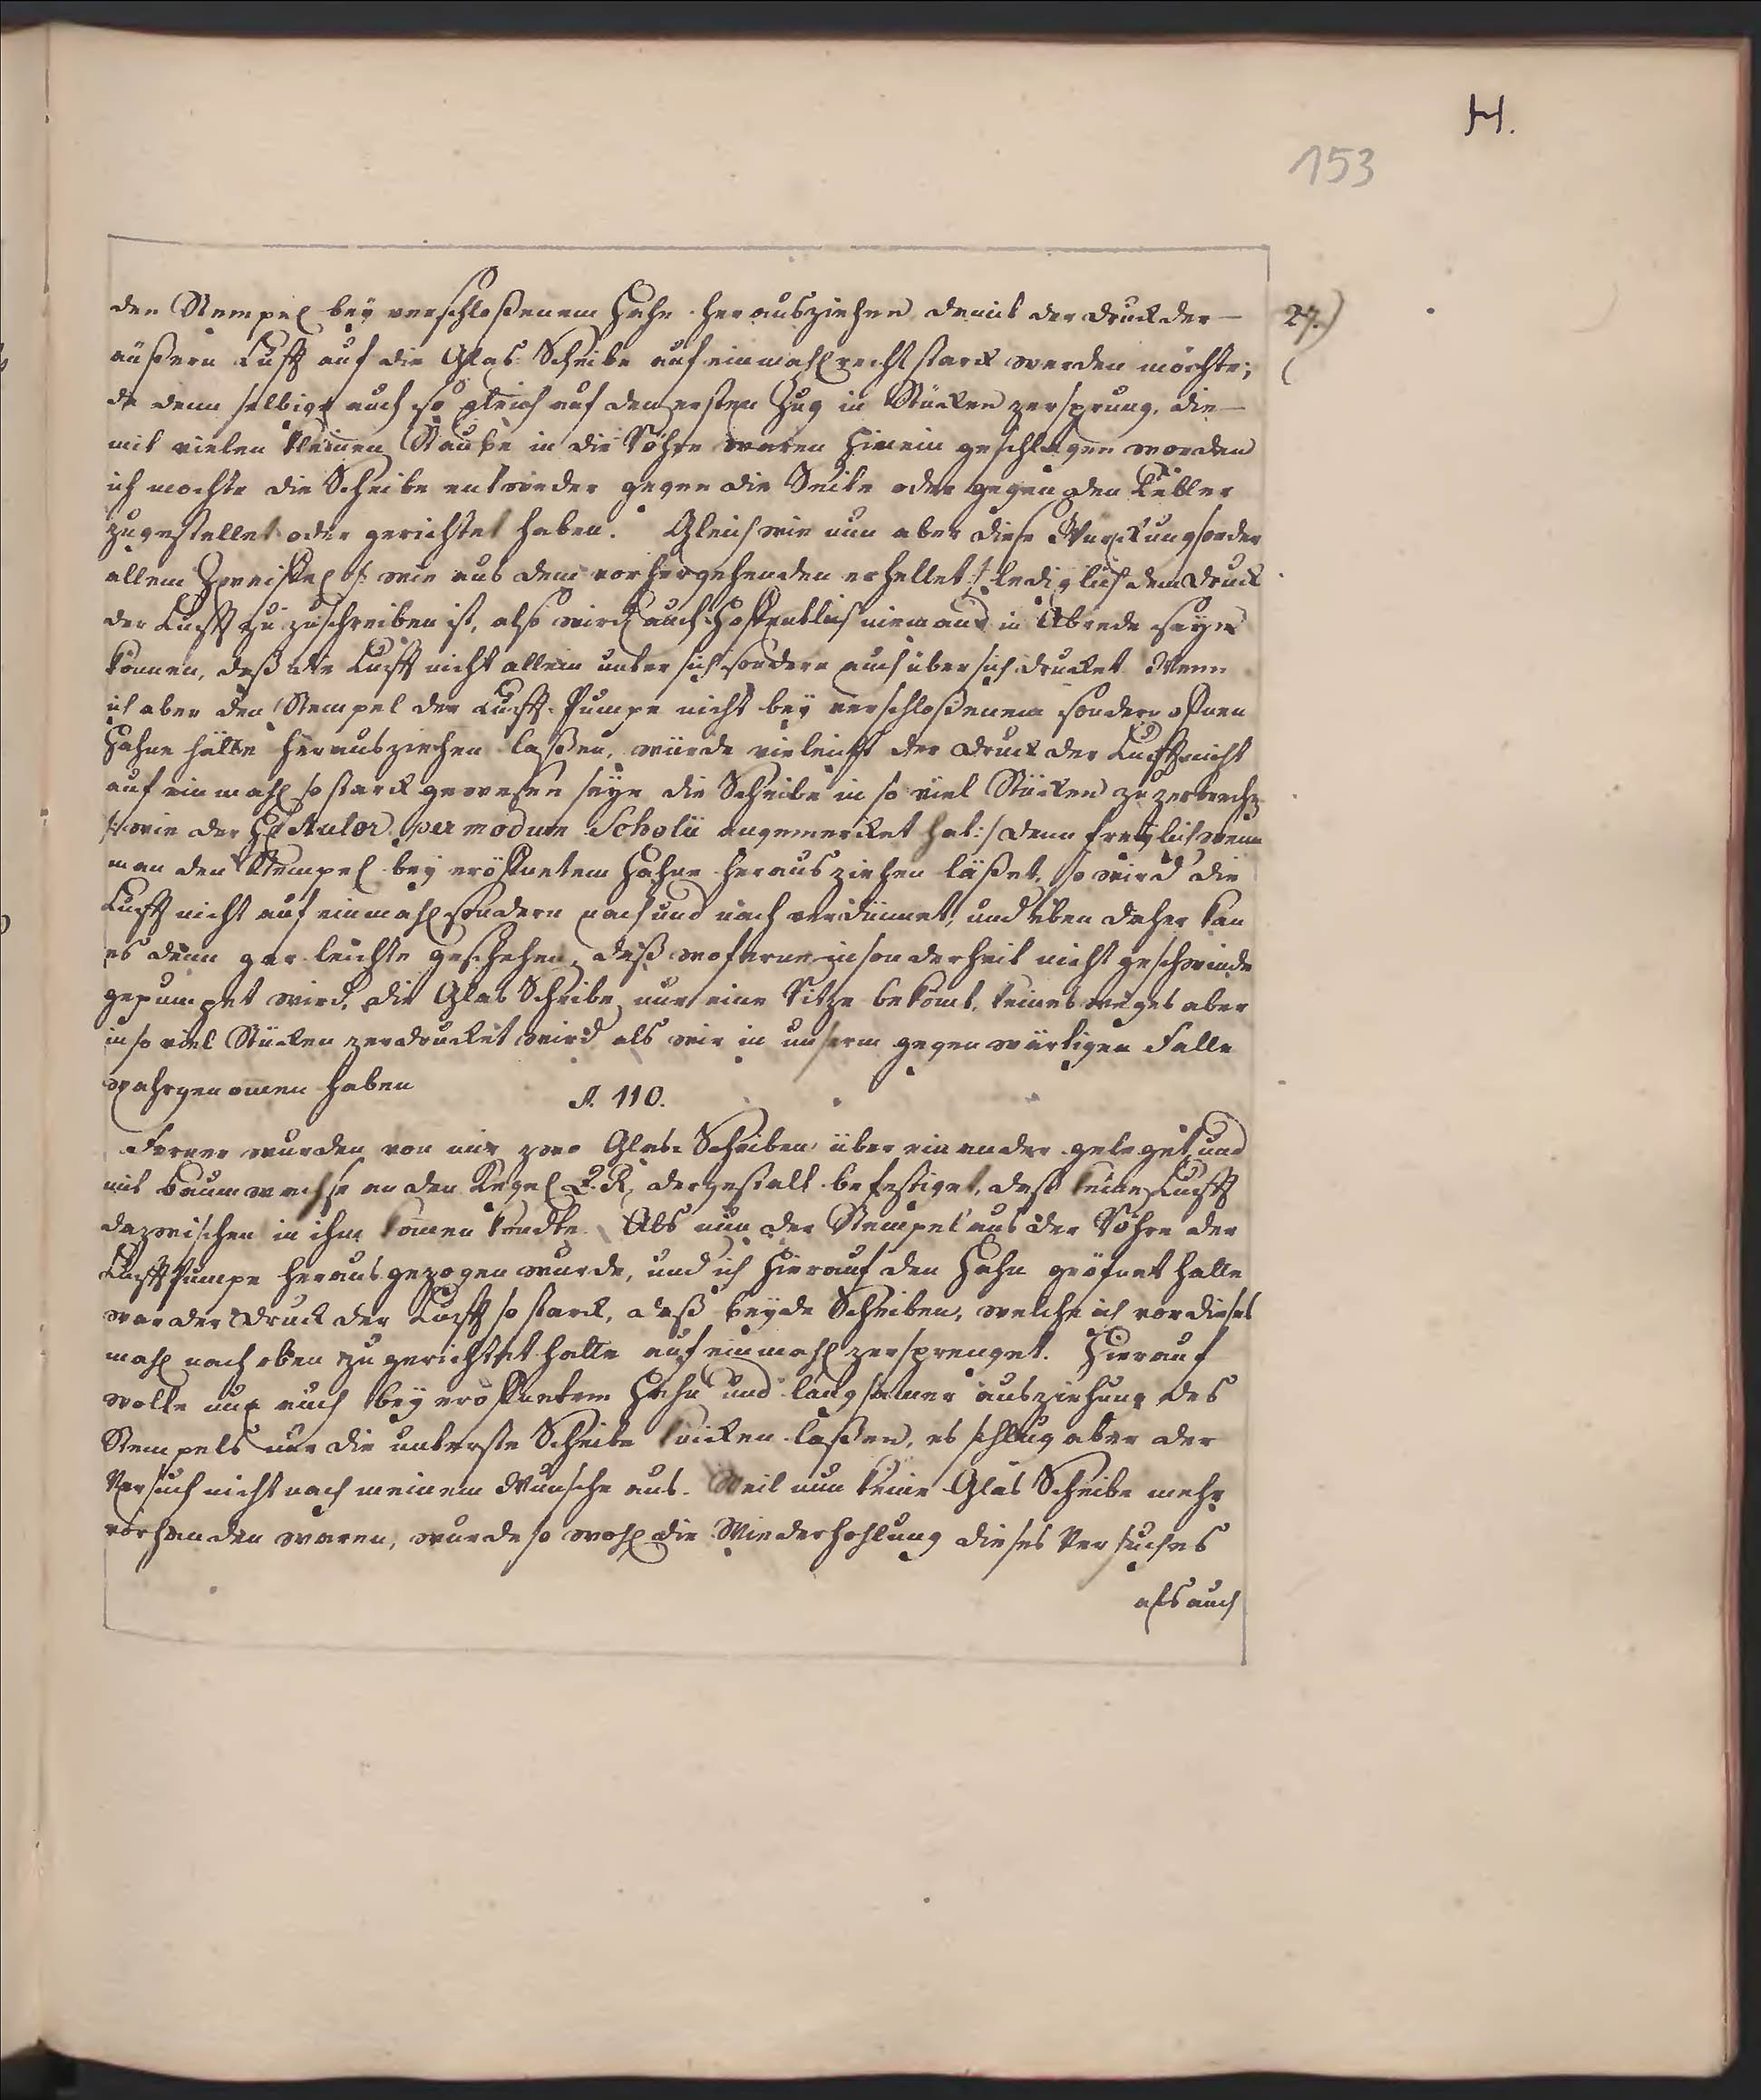 H.
153
27.)
den Stempel bey verschloßenem Hahn herausziehen damit der Druck der
äußern Lufft auf die Glas-Scheibe auf einmahl recht starck werden möchte;
da denn selbige auch so gleich auf den ersten Zug in Stücken zersprung, die
mit vielen kleinen Staube in die Röhre waren hinein geschlagen worden
ich mochte die Scheibe entweder gegen die Seite oder gegen den Teller
zugestellet oder gerichtet haben. Gleichwie nun aber diese Würckung sonder
allem Zweiffel /: wie aus dem vorhergehenden erhellet :/ lediglich dem Druck
der Lufft zu zuschreiben ist, also wird auch hoffentlich niemand in Abrede seyn
können, daß die Lufft nicht allein unter sich sondern auch über sich drucket. Wenn
ich aber den Stempel der Lufft-Pumpe nicht bey verschloßenem sondern ofnen
Hahne hätte herausziehen laßen, würde vieleicht der Druck der Lufft nicht
auf einmahl so starck gewesen seyn die Scheibe in so viel Stücken zu zerbrechen
/: wie der H. Autor per modum Scholii angemercket hat :/ denn freylich wenn
man den Stempel bey eröffnetem Hahne heraus ziehen läßet, so wird die
Lufft nicht auf einmahl sondern nach und nach verdünnet, und eben daher kan
es denn gar leichte geschehen, daß woferne insonderheit nicht geschwinde
gepumpet wird, die Glas Scheibe nur eine Ritze bekomt, keines weges aber
in so viel Stücken zerdrucket wird als wir in unserm gegenwärtigen Falle
wahrgenomen haben
§. 110.
Ferner wurden von mir zwo Glas-Scheiben über einander geleget, und
mit Baumwachse an den Kegel Q.R. dergestalt befestiget, daß keine Lufft
dazwischen in ihm komen kondte. Als nun der Stempel aus der Röhre der
Lufft Pumpe heraus gezogen wurde, und ich hierauf den Hahn geöfnet hatte
war der Druck der Lufft so starck, daß beyde Scheiben, welche ich vor dieses
mahl nach oben zu gerichtet hatte auf einmahl zersprenget. Hierauf
wolte nun auch bey eröffnetem Hahn und langsamer ausziehung des
Stempels nur die unterste Scheibe laßen, es schlug aber der
Versuch nicht nach meinem Wunsche aus. Weil nun keine Glas Scheibe mehr
vorhanden waren, wurde so wohl die Wiederhohlung dieses Versuches
als auch